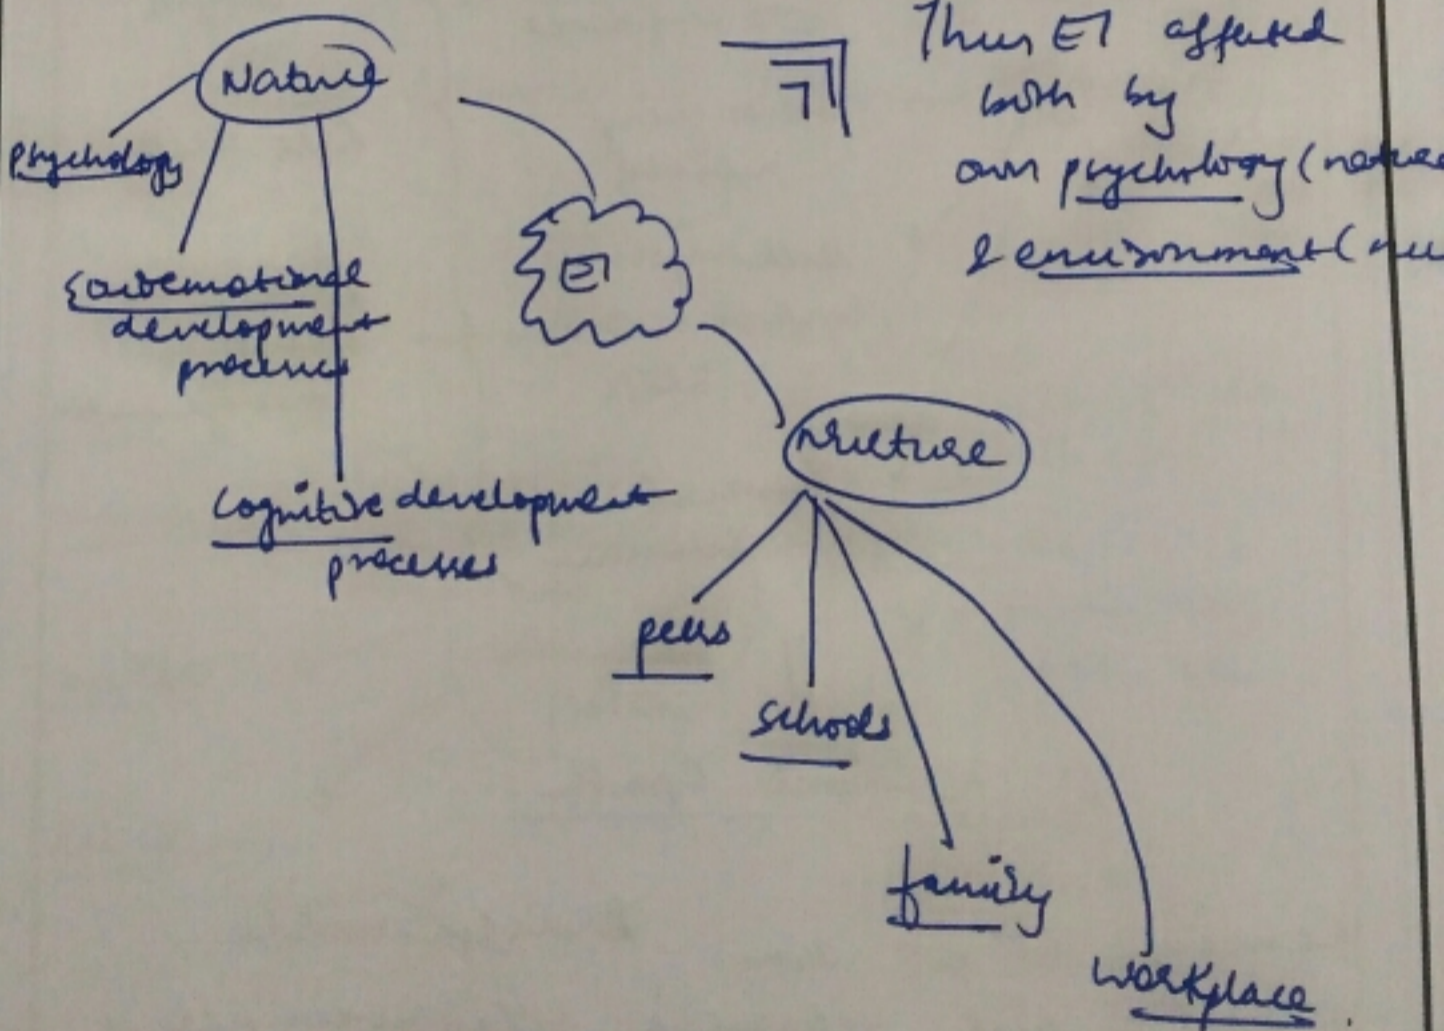 Nature
psychology
development
processes
Cognitive development
processes
EI
Nurture
peers
schools
family
workplace
Thus EI affected
both by
own psychology (nature
& environment (nu